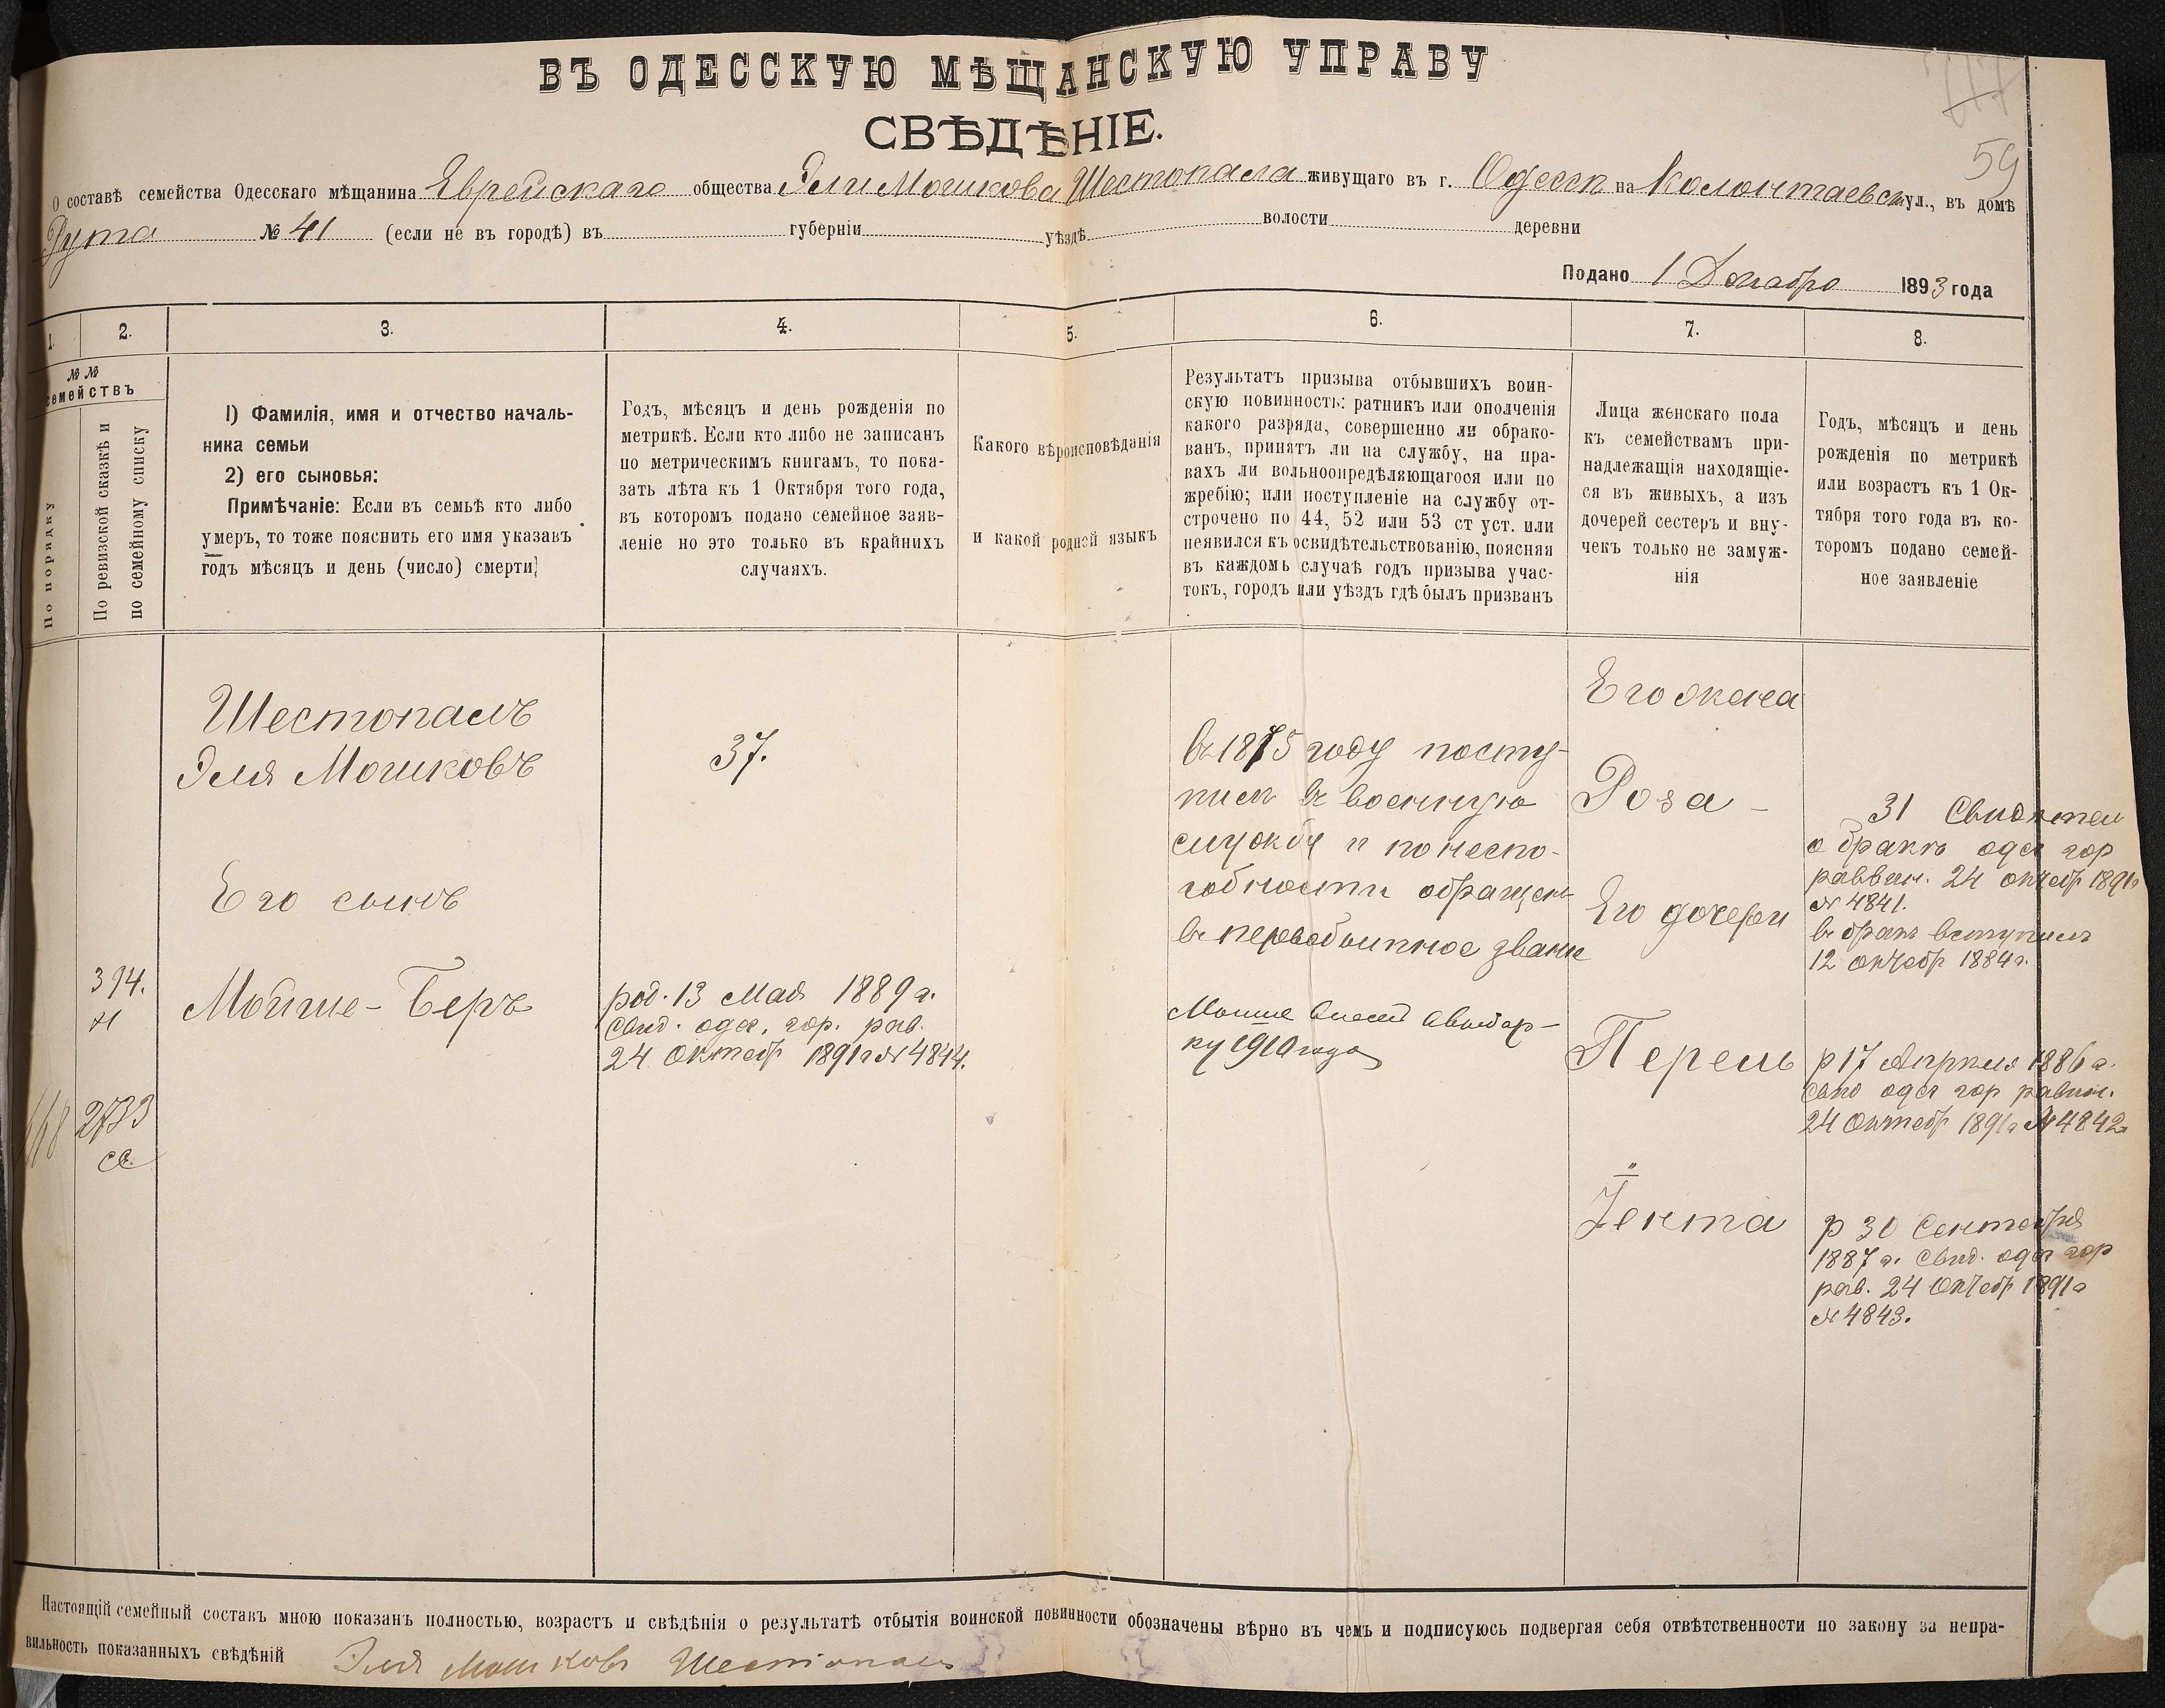 ВЪ ОДЕССКУЮ МѢЩАНСКУЮ УПРАВУ
СВѢДѢНІЕ.
59
О составѣ семейства Одесскаго мѣщанина Еврейскаго общества Эли Мошкова Шестопала живущаго въ г. Одессѣ на Колонтаевск ул., въ домѣ
Гута № 41 (если не въ городѣ) въ губерніи уѣздѣ волости деревни
Подано 1 Декабря 1893 года
1. 2. 3. 4. 5. 6. 7. 8.
№№
семействъ
По порядку
По ревизской сказкѣ и
по семейному списку
1) Фамилія, имя и отчество началь-
ника семьи
2) его сыновья:
Примѣчаніе: Если въ семьѣ кто либо
умеръ, то тоже пояснить его имя указавъ
годъ мѣсяцъ и день (число) смерти
Годъ, мѣсяцъ и день рожденія по
метрикѣ. Если кто либо не записанъ
по метрическимъ книгамъ, то пока-
зать лѣта къ 1 Октября того года,
въ которомъ подано семейное заяв-
леніе но это только въ крайнихъ
случаяхъ.
Какого вѣроисповѣданія
и какой родной языкъ
Результатъ призыва отбывшихъ воин-
скую повинность: ратникъ или ополченія
какого разряда, совершенно ли обрако-
ванъ, принятъ ли на службу, на пра-
вахъ ли вольноопредѣляющагося или по
жребію; или поступленіе на службу от-
строчено по 44, 52 или 53 ст уст. или
неявился къ освидѣтельствованію, поясняя
въ каждомъ случаѣ годъ призыва учас-
токъ, городъ или уѣздъ гдѣ былъ призванъ
Лица женскаго пола
къ семействамъ при-
надлежащія находящіе-
ся въ живыхъ, а изъ
дочерей сестеръ и вну-
чекъ только не замуж-
нія
Годъ, мѣсяцъ и день
рожденія по метрикѣ
или возрастъ къ 1 Ок-
тября того года въ ко-
торомъ подано семей-
ное заявленіе
Шестопалъ
Эля Мошковъ
37.
въ 1875 году посту-
пилъ въ военную
службу и по неспо-
собности обращенъ
въ первобытное званіе
Его жена
Роза -
31 Свидѣтел
о бракѣ одес гор
раввин. 24 октябр 1891г
№ 4841.
въ бракъ вступилъ
12 октябр 1884г.
Его сынъ
394.
Мойше-Беръ
род. 13 Мая 1889 г.
свид. одес. гор. рав.
24 Октябр 1891г № 4844.
1910 года
2733
Его дочери
Перель
р 17 Апрѣля 1886 г.
свид одес гор равин.
24 Октябр 1891г № 4842
Іента
р 30 Сентября
1887 г. свид. одес гор
рав. 24 октябр 1891г
№ 4843.
Настоящій семейный составъ мною показанъ полностью, возрастъ и свѣдѣнія о результатѣ отбытія воинской повинности обозначены вѣрно въ чемъ и подписуюсь подвергая себя отвѣтственности по закону за непра-
вильность показанныхъ свѣдѣній Эля Мошковъ Шестопалъ